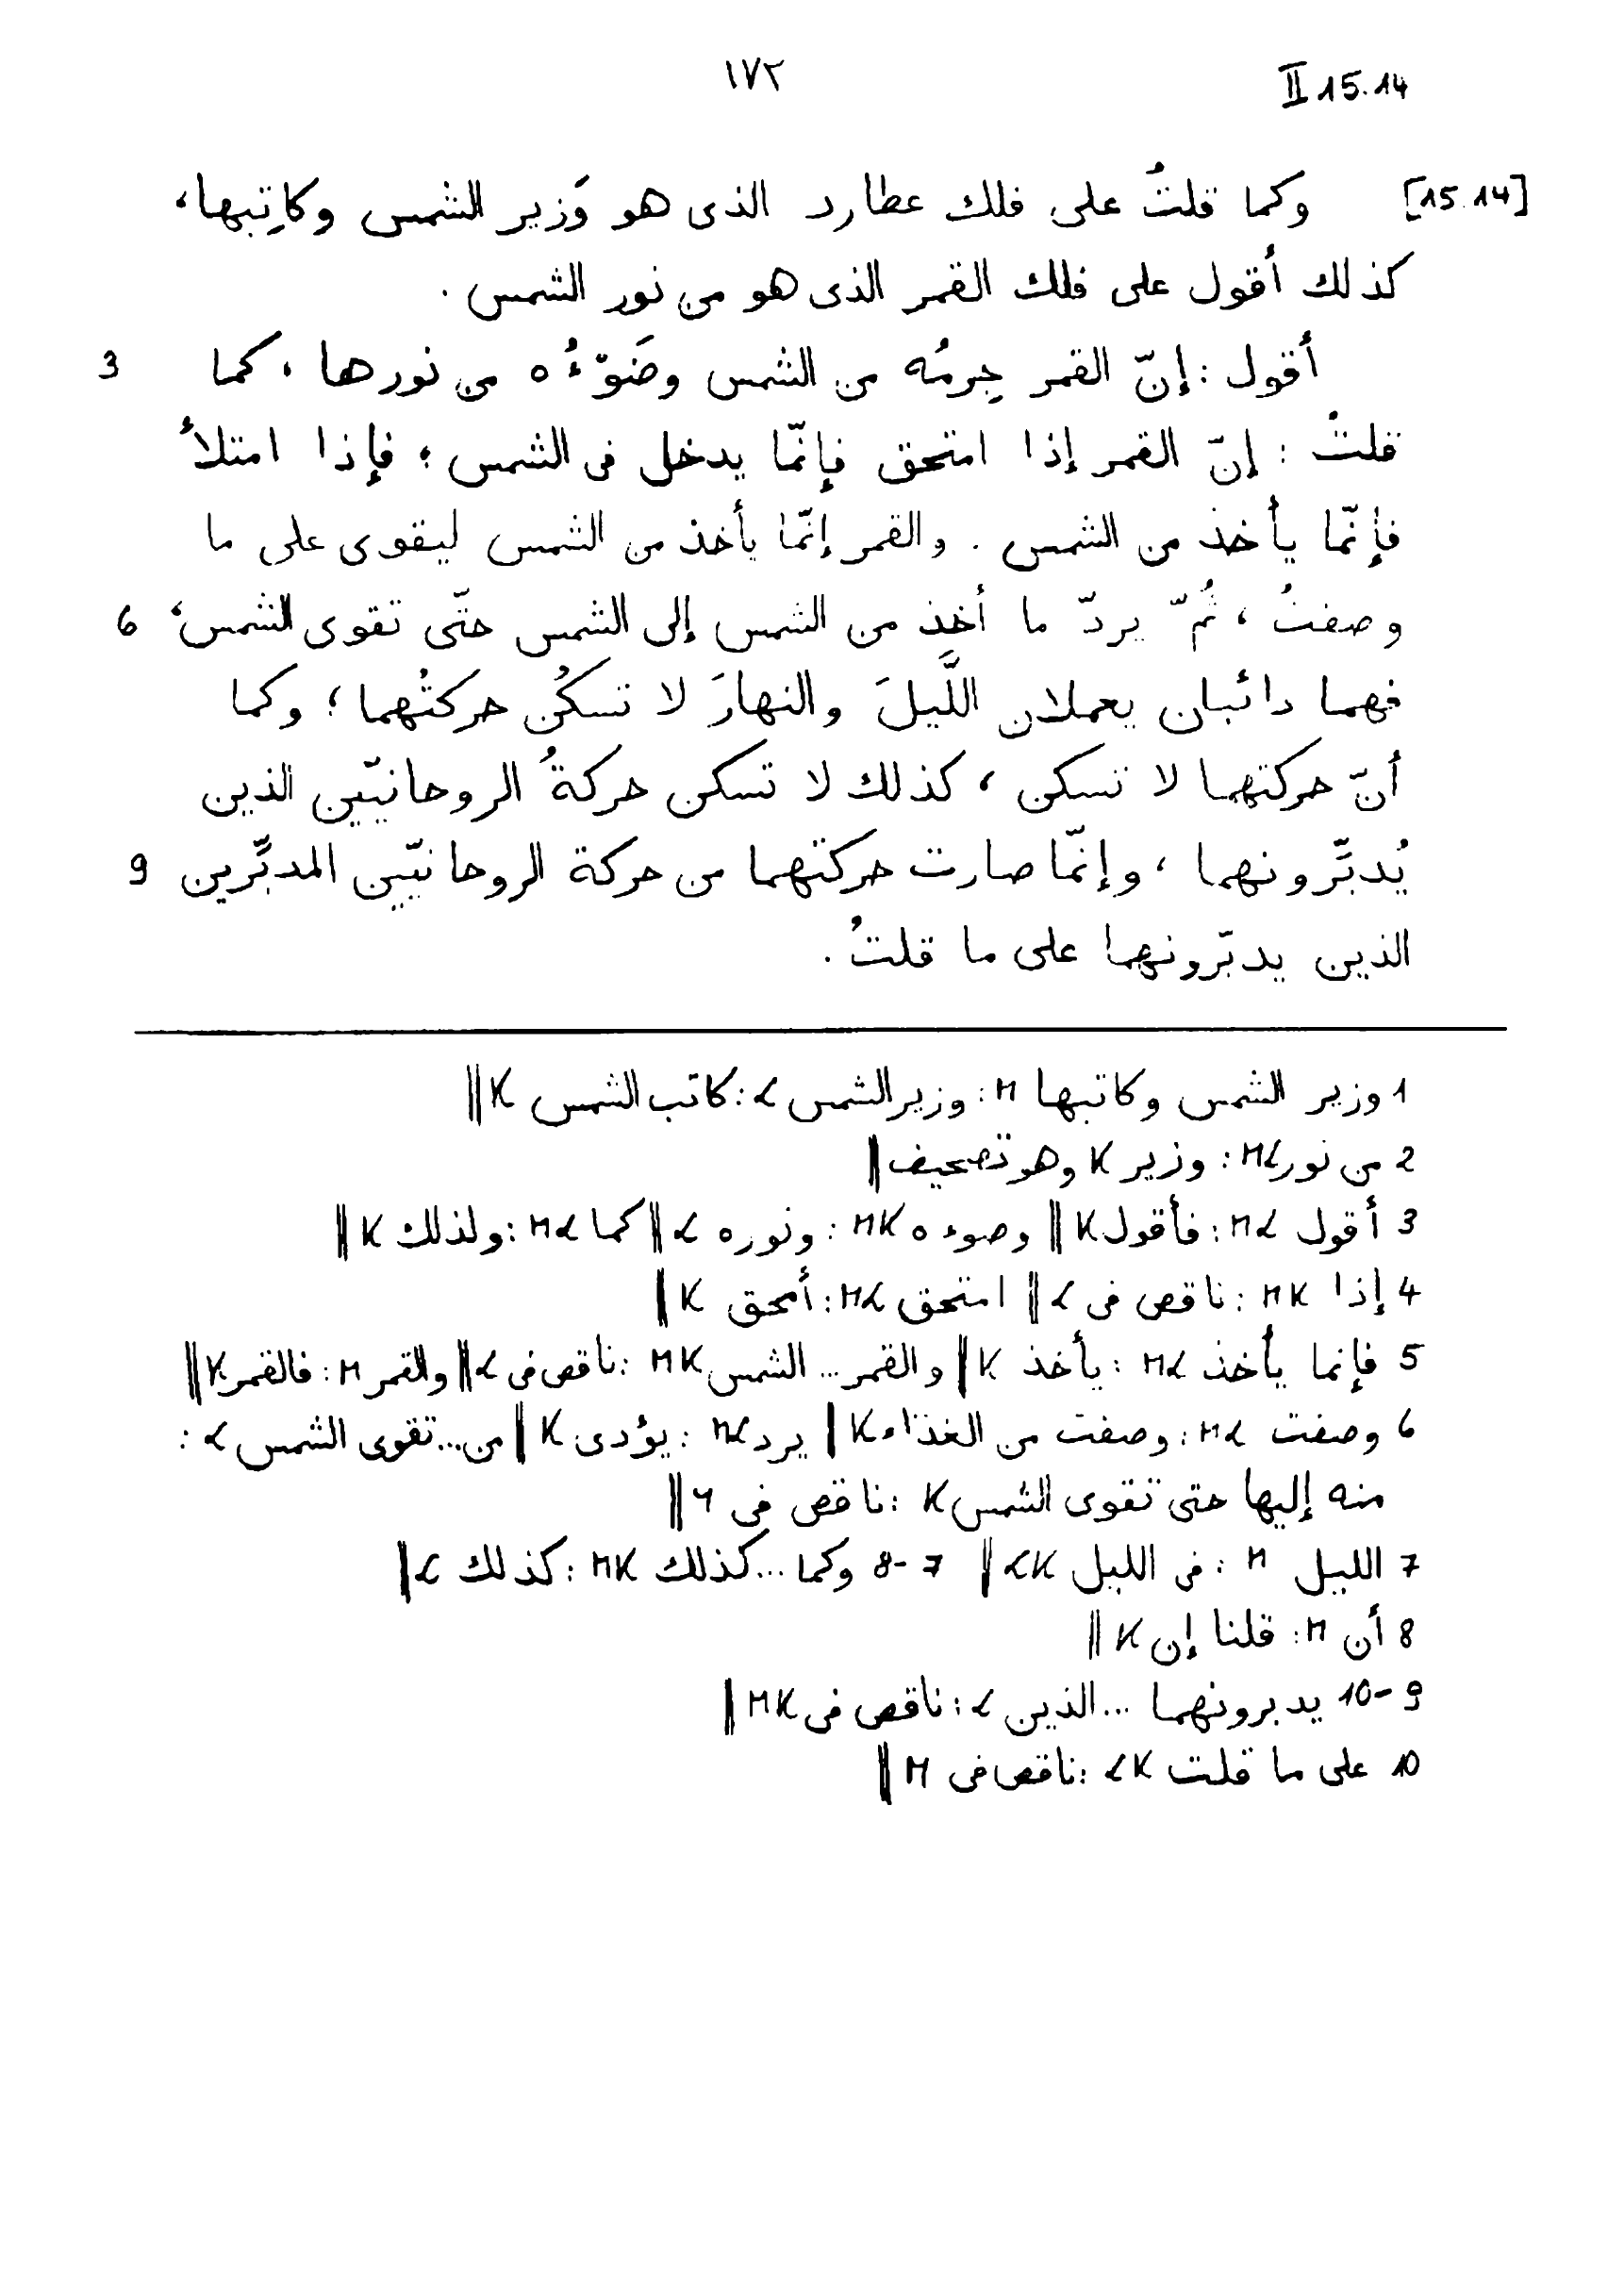 ١٧٢
II 15.14
[15.14] وكما قلتُ على فلك عطارد الذى هو وَزير الشمس وكاتِبها،
كذلك أقول على فلك القمر الذى هو من نور الشمس .
أقول : إنّ القمر جِرمُه من الشمس وضَوْءُه من نورها ، كما 3
قلتُ : إنّ القمر إذا امتحق فإنّما يدخل فى الشمس ؛ فإذا امتلأ
فإنّما يأخذ من الشمس . والقمر إنّما يأخذ من الشمس ليقوى على ما
وصفتُ ، ثُمّ يردّ ما أخذ من الشمس إلى الشمس حتّى تقوى الشمس؛ 6
فهما دائبان يعملان اللَّيلَ والنهارَ لا تسكُن حركتُهما ؛ وكما
أنّ حركتهما لا تسكن ، كذلك لا تسكن حركةُ الروحانيّين الذين
يُدبِّرونهما ، وإنّما صارت حركتهما من حركة الروحانيّين المدبِّرين 9
الذين يدبّرونهما على ما قلتُ .
1 وزير الشمس وكاتبها M : وزير الشمس L : كاتب الشمس K ||
2 من نور ML : وزير K وهو تصحيف ||
3 أقول ML : فأقول K || وضوءه MK : ونوره L || كما ML : ولذلك K ||
4 إذا MK : ناقص فى L || امتحق ML : أمحق K ||
5 فإنما يأخذ ML : يأخذ K || والقمر ... الشمس MK : ناقص فى L || والقمر M : فالقمر K ||
6 وصفت ML : وصفت من الغذاء K || يرد ML : يؤدى K || من ... تقوى الشمس L :
منه إليها حتى تقوى الشمس K : ناقص فى M ||
7 الليل M : فى الليل LK || 7-8 وكما ... كذلك MK : كذلك L ||
8 أن M : قلنا إن K ||
9-10 يدبرونهما ... الذين L : ناقص فى MK ||
10 على ما قلت LK : ناقص فى M ||